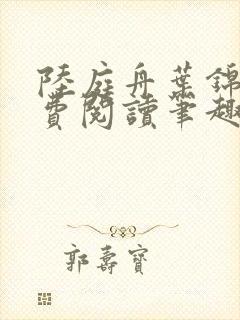 陸庭舟葉錦
費閱讀筆趣
郭壽寶